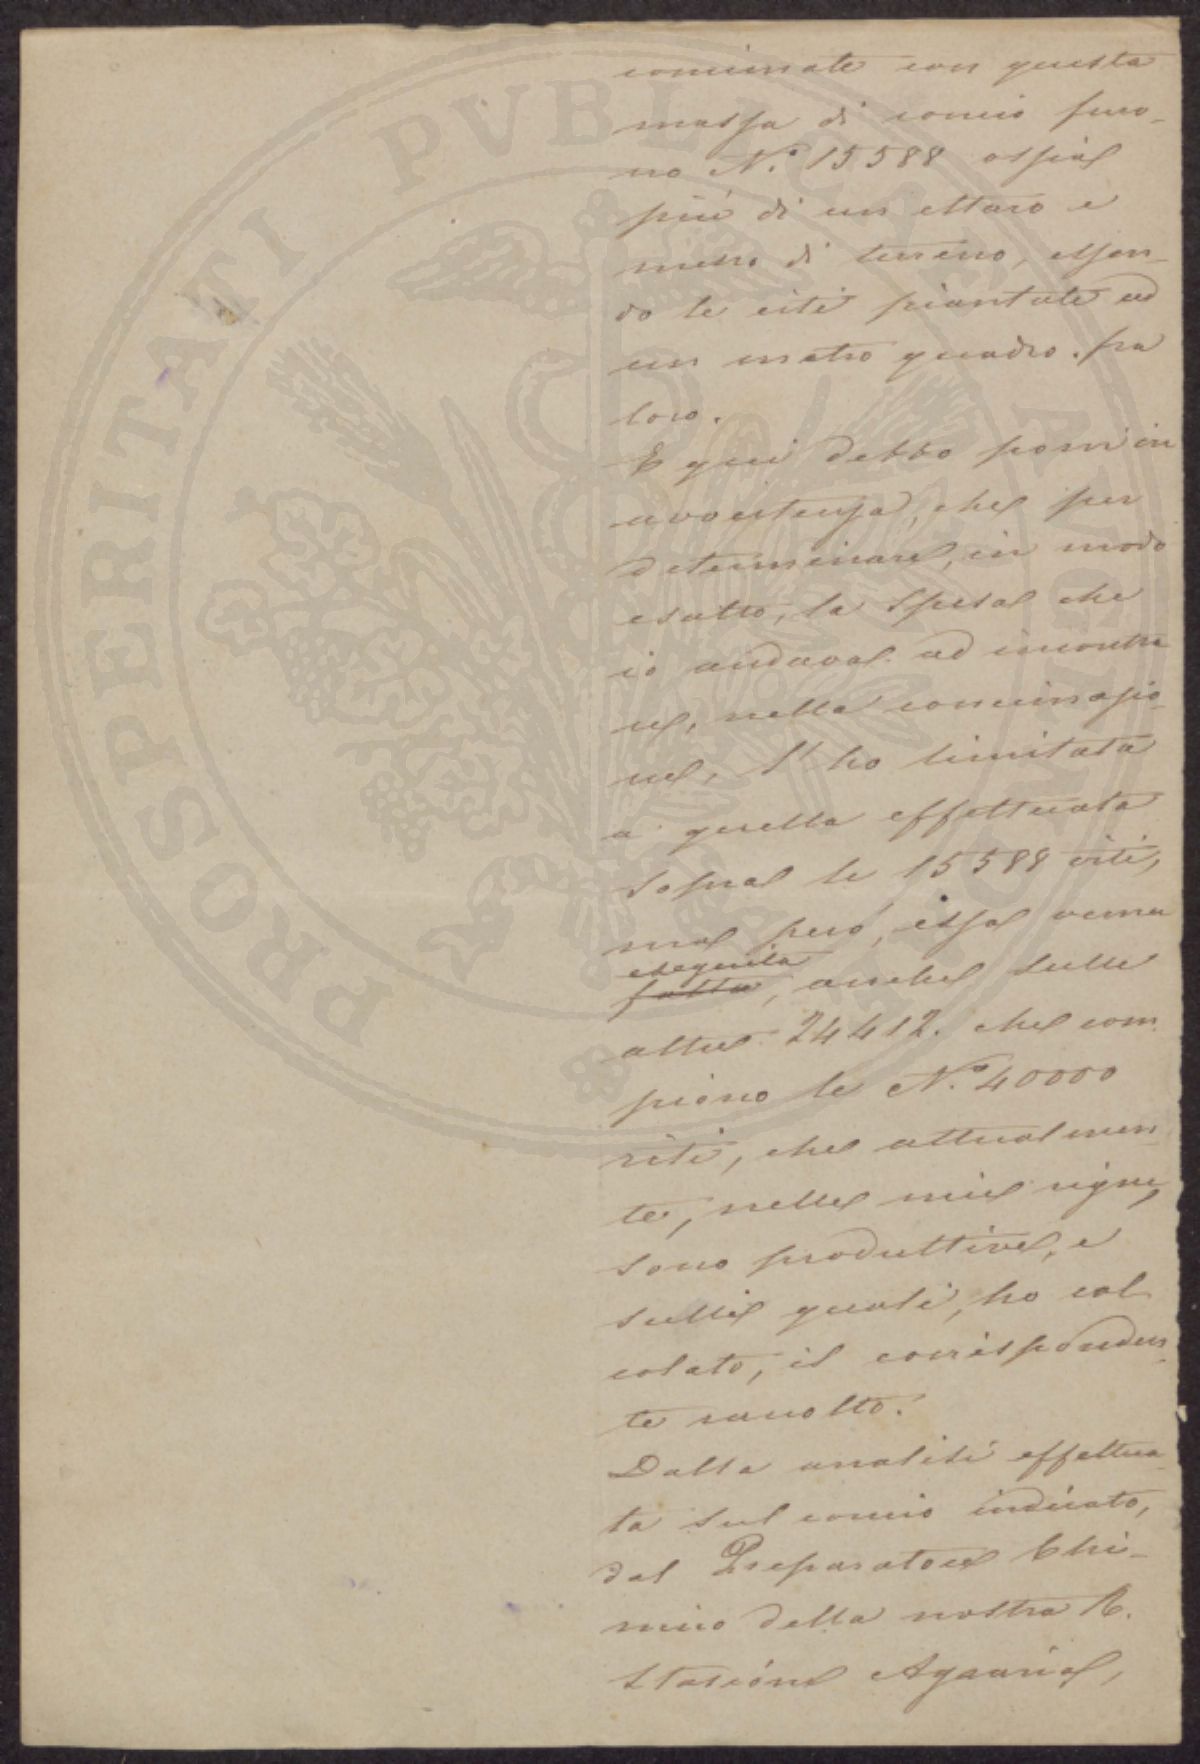 concimate con questa
massa di concio furo-
no N.° 15588 ossia
più di un ettaro e
mezzo di terreno, essen-
do le viti piantate ad
un metro quadro. fra
loro.
E qui debbo porre in
avvertenza, che per
determinare, in modo
esatto, la spesa che
io andava ad incontra
re, nella concimazio-
ne, l'ho limitata
a quella effettuata
sopra le 15588 viti,
ma però, essa venne
eseguita
fatta, anche sulle
altre 24412. che com
piono le N.° 40000
viti, che attualmen
te, nelle mie vigne,
sono produttive, e
sulle quali, ho cal
colato, il corrisponden-
te raccolto.
Dalla analisi effettua-
ta sul concio indicato,
dal Preparatore Chi-
mico della nostra R.
Stazione Agraria,
PROSPERITATI PVBLICAE AVGENDAE